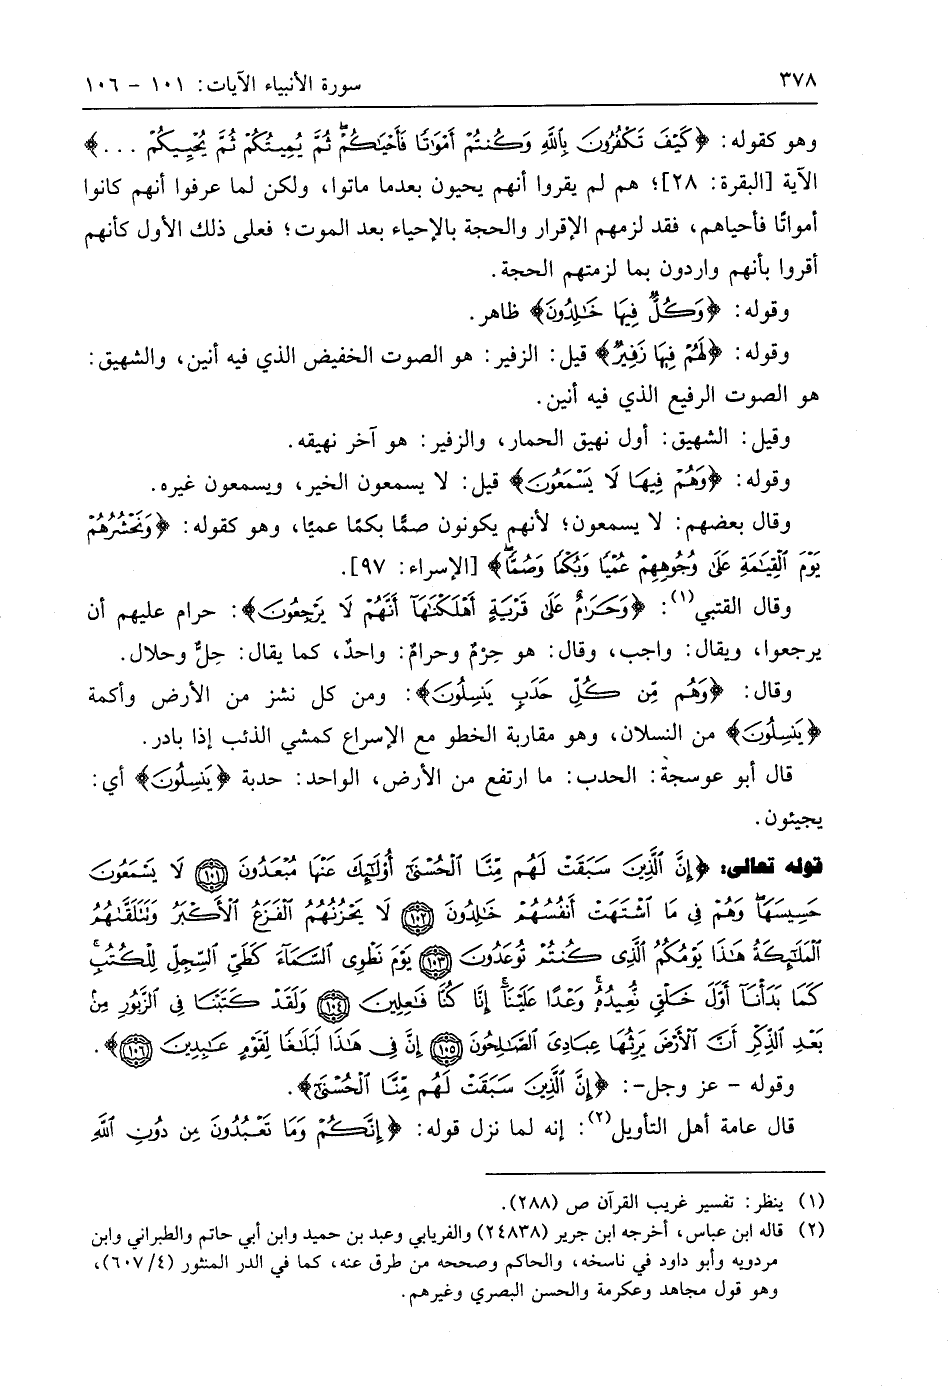 ٣٧٨ سورة الأنبياء الآيات: ١٠١ - ١٠٦
وهو كقوله: ﴿كَيْفَ تَكْفُرُونَ بِاللَّهِ وَكُنتُمْ أَمْوَاتًا فَأَحْيَاكُمْ ثُمَّ يُمِيتُكُمْ ثُمَّ يُحْيِيكُمْ ...﴾
الآية [البقرة: ٢٨]؛ هم لم يقروا أنهم يحيون بعدما ماتوا، ولكن لما عرفوا أنهم كانوا
أمواتًا فأحياهم، فقد لزمهم الإقرار والحجة بالإحياء بعد الموت؛ فعلى ذلك الأول كأنهم
أقروا بأنهم واردون بما لزمتهم الحجة.
وقوله: ﴿وَكُلٌّ فِيهَا خَٰلِدُونَ﴾ ظاهر.
وقوله: ﴿لَهُمْ فِيهَا زَفِيرٌ﴾ قيل: الزفير: هو الصوت الخفيض الذي فيه أنين، والشهيق:
هو الصوت الرفيع الذي فيه أنين.
وقيل: الشهيق: أول نهيق الحمار، والزفير: هو آخر نهيقه.
وقوله: ﴿وَهُمْ فِيهَا لَا يَسْمَعُونَ﴾ قيل: لا يسمعون الخير، ويسمعون غيره.
وقال بعضهم: لا يسمعون؛ لأنهم يكونون صمًّا بكمًا عميًا، وهو كقوله: ﴿وَنَحْشُرُهُمْ
يَوْمَ الْقِيَٰمَةِ عَلَىٰ وُجُوهِهِمْ عُمْيًا وَبُكْمًا وَصُمًّا﴾ [الإسراء: ٩٧].
وقال القتبي(١): ﴿وَحَرَٰمٌ عَلَىٰ قَرْيَةٍ أَهْلَكْنَٰهَا أَنَّهُمْ لَا يَرْجِعُونَ﴾: حرام عليهم أن
يرجعوا، ويقال: واجب، وقال: هو حِرْمٌ وحرامٌ: واحدٌ، كما يقال: حِلٌّ وحلال.
وقال: ﴿وَهُم مِّن كُلِّ حَدَبٍ يَنسِلُونَ﴾: ومن كل نشز من الأرض وأكمة
﴿يَنسِلُونَ﴾ من النسلان، وهو مقاربة الخطو مع الإسراع كمشي الذئب إذا بادر.
قال أبو عوسجة: الحدب: ما ارتفع من الأرض، الواحد: حدبة ﴿يَنسِلُونَ﴾ أي:
يجيئون.
قوله تعالى: ﴿إِنَّ الَّذِينَ سَبَقَتْ لَهُم مِّنَّا الْحُسْنَىٰٓ أُو۟لَٰٓئِكَ عَنْهَا مُبْعَدُونَ ١٠١ لَا يَسْمَعُونَ
حَسِيسَهَا وَهُمْ فِي مَا اشْتَهَتْ أَنفُسُهُمْ خَٰلِدُونَ ١٠٢ لَا يَحْزُنُهُمُ الْفَزَعُ الْأَكْبَرُ وَتَتَلَقَّىٰهُمُ
الْمَلَٰٓئِكَةُ هَٰذَا يَوْمُكُمُ الَّذِي كُنتُمْ تُوعَدُونَ ١٠٣ يَوْمَ نَطْوِي السَّمَآءَ كَطَيِّ السِّجِلِّ لِلْكُتُبِ
كَمَا بَدَأْنَآ أَوَّلَ خَلْقٍ نُّعِيدُهُ وَعْدًا عَلَيْنَآ إِنَّا كُنَّا فَٰعِلِينَ ١٠٤ وَلَقَدْ كَتَبْنَا فِي الزَّبُورِ مِنۢ
بَعْدِ الذِّكْرِ أَنَّ الْأَرْضَ يَرِثُهَا عِبَادِيَ الصَّٰلِحُونَ ١٠٥ إِنَّ فِي هَٰذَا لَبَلَٰغًا لِّقَوْمٍ عَٰبِدِينَ ١٠٦﴾.
وقوله - عز وجل-: ﴿إِنَّ الَّذِينَ سَبَقَتْ لَهُم مِّنَّا الْحُسْنَىٰٓ﴾.
قال عامة أهل التأويل(٢): إنه لما نزل قوله: ﴿إِنَّكُمْ وَمَا تَعْبُدُونَ مِن دُونِ اللَّهِ
(١) ينظر: تفسير غريب القرآن ص (٢٨٨).
(٢) قاله ابن عباس، أخرجه ابن جرير (٢٤٨٣٨) والفريابي وعبد بن حميد وابن أبي حاتم والطبراني وابن
مردويه وأبو داود في ناسخه، والحاكم وصححه من طرق عنه، كما في الدر المنثور (٤/ ٦٠٧)،
وهو قول مجاهد وعكرمة والحسن البصري وغيرهم.